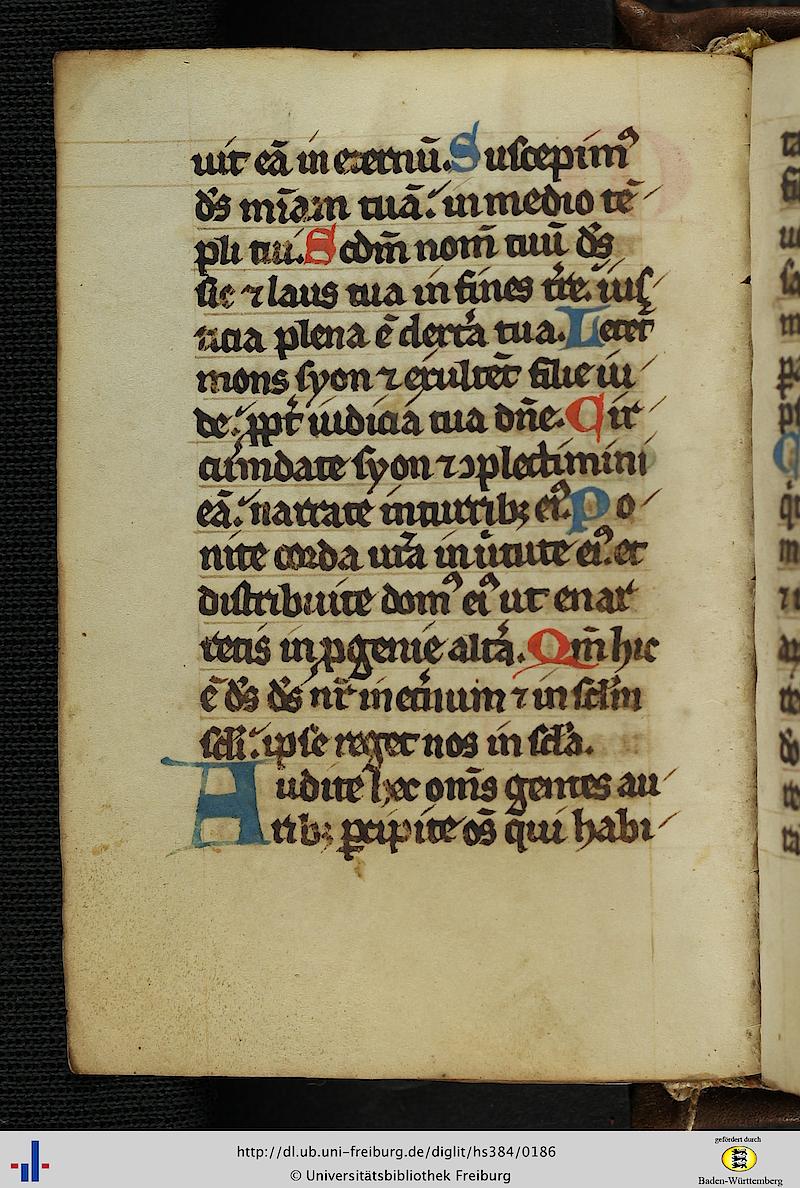 uit eā in eternū. Suscepimꝰ
ds̄ mīam tuā. in medio tē
pli tui. Scdm̄ nom̄ tuū ds̄
sic ⁊ laus tua in fines tr̄re. ius
ticia plena ē dextr̄a tua. Letet᷑
mons syon ⁊ exultēt filie iu
de. ꝓpt̄ iudicia tua dn̄e. Cir
cūmdate syon ⁊ ꝯplectimini
eā. narrate in turribꝫ eiꝰ. Po
nite corda ur̄a in ūtute eiꝰ. et
distribuite domꝰ eiꝰ ut enar
retis in ꝓgenie altā. Qm̄ hic
ē ds̄ ds̄ nr̄ in et̄num ⁊ in sclm̄
scli. ipse reget nos in scl̄a.
Audite hec om̄s gentes au
ribꝫ ꝑcipite os̄ qui habi
http://dl.ub.uni-freiburg.de/diglit/hs384/0186
© Universitätsbibliothek Freiburg
gefördert durch
Baden-Württemberg